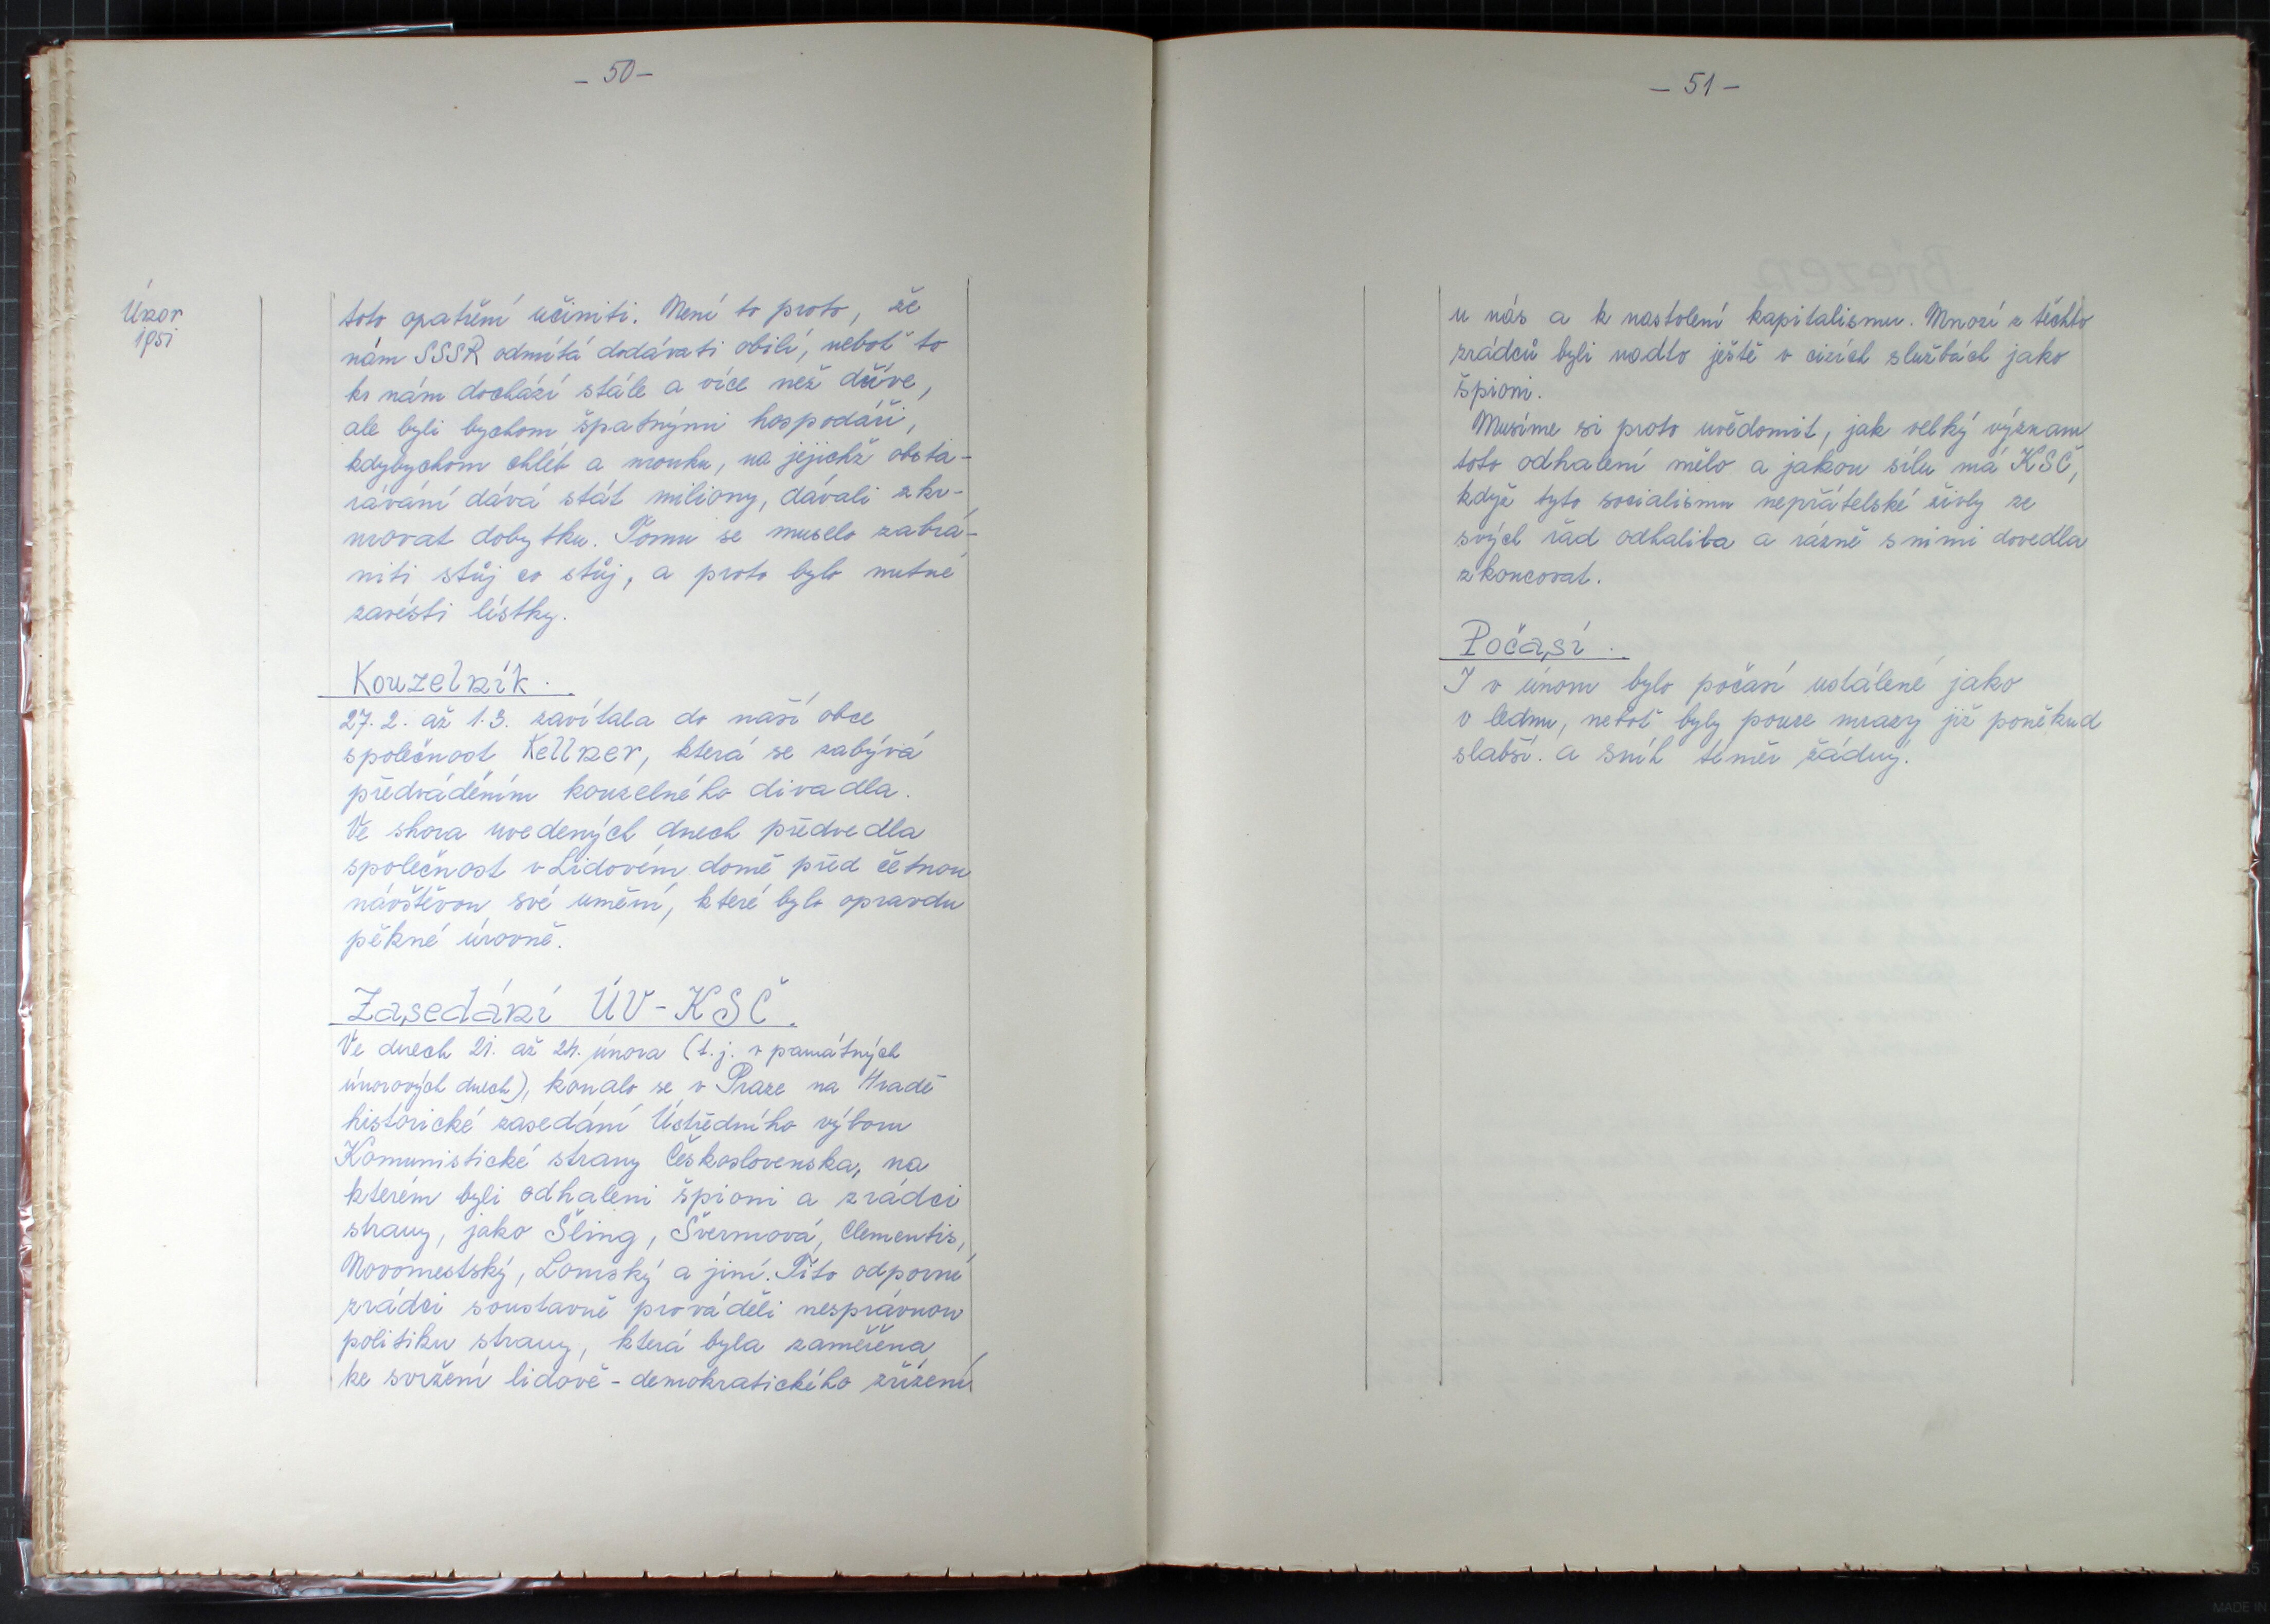 - 50 -
Únor
1951
toto opatření učiniti. Není to proto, že
nám SSSR odmítá dodávati obilí, neboť to
k nám dochází stále a více než dříve,
ale byli bychom špatnými hospodáři,
kdybychom chléb a mouku, na jejichž obsta-
rávání dává stát miliony, dávali zkr-
movat dobytku. Tomu se muselo zabrá-
niti stůj co stůj, a proto bylo nutné
zavésti lístky.
Kouzelník.
27. 2. až 1. 3. zavítala do naší obce
společnost Kellner, která se zabývá
předváděním kouzelného divadla.
Ve shora uvedených dnech předvedla
společnost v Lidovém domě před četnou
návštěvou své umění, které bylo opravdu
pěkné úrovně.
Zasedání ÚV-KSČ.
Ve dnech 21. až 24. února (t.j. v památných
únorových dnech), konalo se v Praze na Hradě
historické zasedání Ústředního výboru
Komunistické strany Československa, na
kterém byli odhaleni špioni a zrádci
strany, jako Šling, Švermová, Clementis,
Novomestský, Lomský a jiní. Tito odporní
zrádci soustavně prováděli nesprávnou
politiku strany, která byla zaměřena
ke svržení lidově-demokratického zřízení
- 51 -
u nás a k nastolení kapitalismu. Mnozí z těchto
zrádců byli nadto ještě v cizích službách jako
špioni.
Musíme si proto uvědomit, jak velký význam
toto odhalení mělo a jakou sílu má KSČ,
když tyto socialismu nepřátelské živly ze
svých řad odhalila a rázně s nimi dovedla
zkoncovat.
Počasí.
I v únoru bylo počasí ustálené jako
v lednu, neboť byly pouze mrazy již poněkud
slabší. a sníh téměr žádný.